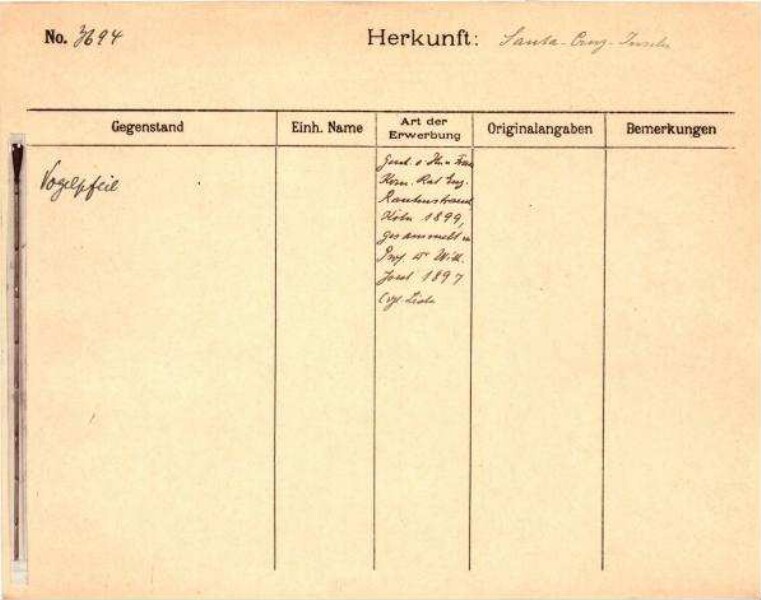 No. 3694
Herkunft: Santa-Cruz-Inseln
Gegenstand
Einh. Name
Art der
Erwerbung
Originalangaben
Bemerkungen
Vogelpfeil
Gesch. v. Frau
Kom. Rat Eug.
Rautenstrauch
Köln 1899,
gesammelt v.
Prof. Dr Wilh.
Joest 1897